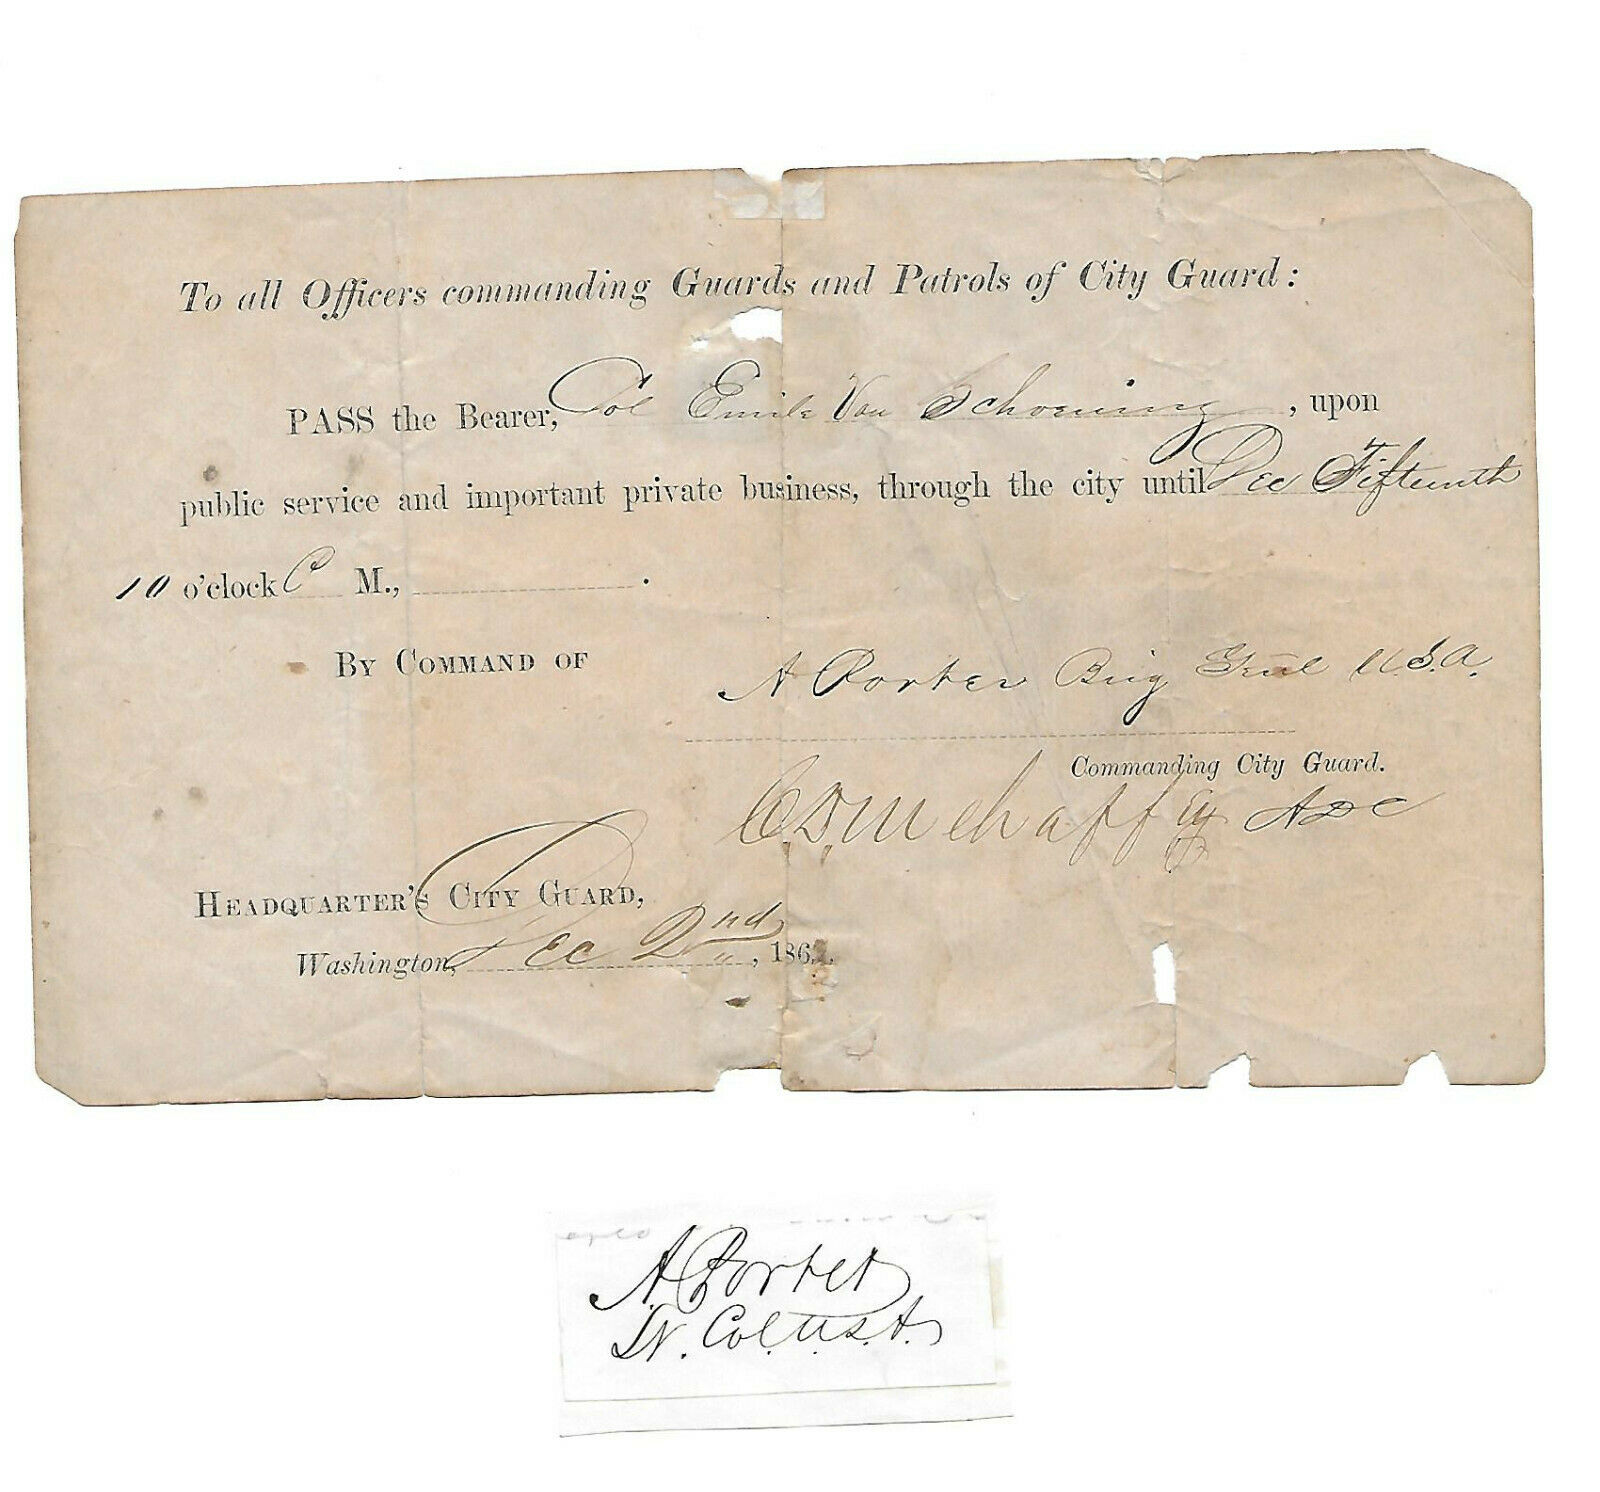 To all Officers commanding Guards and Patrols of City Guard:
PASS the Bearer, Col Emile Von Schoening, upon
public service and important private business, through the city until Dec Fifteenth
10 o'clock P M.,
By Command of
A Porter Brig Genl U.S.A.
Commanding City Guard.
C. D. Mehaffey ADC
Headquarter's City Guard,
Washington, Dec 2nd, 186
A. Porter
Lt. Col. U.S.A.